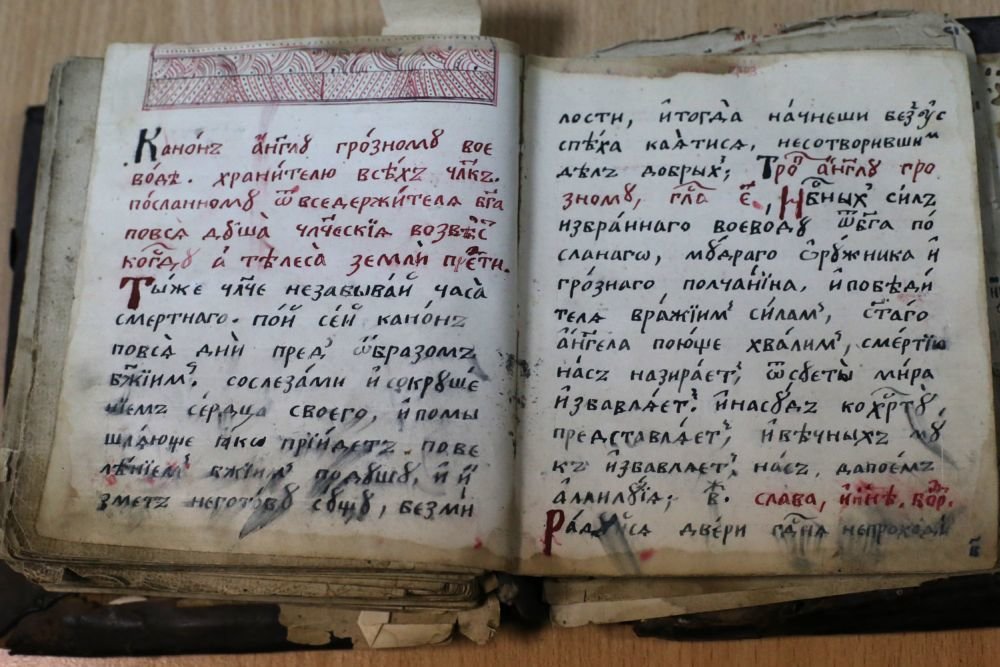 Кано́нъ а҆́гг҃лꙋ гро́зномꙋ вое
во́дѣ. храни́телю всѣ́хъ чл҃къ.
по́сланномꙋ ѿ вседержи́телѧ бг҃а
повсѧ̀ дꙋ́ша̀ чл҃ческїѧ
а҆ тѣлеса̀ земли̇̀
Ты́же чл҃че незабыва́й часа̀
сме́ртнаго. по́й се́й кано́нъ
повсѧ̀ дни̇̀ пред̾ ѡ҆́бразомъ
бж҃їим̾. сослеза́ми и҆ сокрꙋше́
нїемъ се́рдца своего̀, и҆помы
шлѧ́юще ꙗ҆́кѡ прїи́детъ. пове
лѣ́нїем̾ бж҃їим̾ подꙋ́шꙋ, и҆ и҆
зметъ негото́вꙋ сꙋ́щꙋ, безми́
лости, и҆тогда̀ на́чнеши без̾ꙋс
спѣ́ха ка́ѧтисѧ, несотвори́вшим
дѣ́лъ до́брых̾; Тро҇ⷫ а҆́гг҃лꙋ гро́
зномꙋ, гла҃ є҃, Нб҇ⷭных̾ си́лъ
и҆збра́ннаго воево́дꙋ ѿбг҃а по́
сланагѡ, мꙋ́драго ѡ҆рꙋ́жника и҆
гро́знаго полча́нїна, и҆побѣди́
телѧ вра́жїим̾ си́лам̾, ст҃а́го
а҆́нг҃ела пою́ще хва́лим̾, сме́ртїю
на́съ назира́ет̾, ѿсꙋеты̀ ми́ра
и҆збавлѧ́ет̾. и҆насꙋ́дъ ко хр҇ⷭтꙋ̀,
представлѧ́ет̾, и҆вѣ́чныхъ мꙋ́
къ и҆збавлѧ́ет̾ на́съ, дапое́мъ
а҆ллилꙋ́їѧ; в҃. сла́ва, и҆ны́нѣ,
Ра́дꙋйсѧ две́ри гдⷭ҇нѧ непроходи́